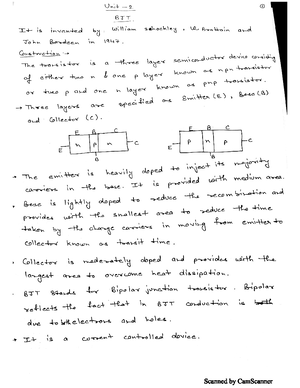 Unit - 2
BJT
It is invented by William schockley, W. Brattain and
John Bardeen in 1947.
Construction -
The transistor is a three layer semiconductor device consisting
of either two n & one p layer known as npn transistor
or two p and one n layer known as pnp transistor.
→ Three layers are specified as Emitter (E), Base (B)
and Collector (C).
E B C E B C
E n p n C E p n p C
B B
• The emitter is heavily doped to inject its majority
carriers in the base. It is provided with medium area.
• Base is lightly doped to reduce the recombination and
provides with the smallest area to reduce the time
taken by the charge carriers in moving from emitter to
collector known as transit time.
• Collector is moderately doped and provides with the
largest area to overcome heat dissipation.
• BJT stands for Bipolar junction transistor. Bipolar
reflects the fact that in BJT conduction is
due to both electrons and holes.
• It is a current controlled device.
Scanned by CamScanner